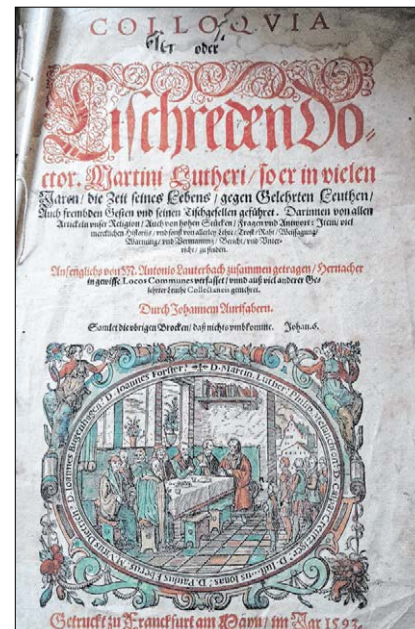 COLLOQVIA
oder
Tischreden Do-
ctor. Martini Lutheri / so er in vielen
Jaren / die Zeit seines Lebens / gegen Gelehrten Leuthen /
Auch frembden Gesten vnd seinen Tischgesellen geführet. Darinnen von allen
Artickeln vnser Religion / Auch von hohen Stücken / Fragen vnd Antwort: Item / viel
mercklichen Historien / vnd sonst von allerley Lehre / Trost / Raht / Weissagung /
Warnung / vnd Vermanung / Bericht / vnd Vnter-
richt / zu finden.
Anfenglichs von M. Antonio Lauterbach zusammen getragen / Hernacher
in gewisse Locos Communes verfasset / vnnd auß viel anderer Ge-
lehrter Leuthe Collectaneis gemehret.
Durch Johannem Aurifabern.
Samlet die vbrigen Brocken / daß nichts vmbkomme. Johan. 6.
D. Martin Luther: Philip. Melanchthon: D. Caspar Creutziger: D. Justus Jonas: D. Paulus Eberus: M. Vitus Dietrich: D. Joannes Bugenhagen: D. Joannes Forster:
Getruckt zu Franckfurt am Mayn / im Jar 1593.